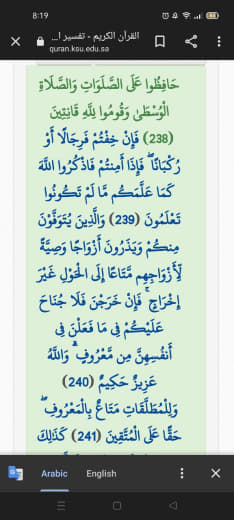 8:19
القرآن الكريم - تفسير ا...
quran.ksu.edu.sa
حَافِظُوا عَلَى الصَّلَوَاتِ وَالصَّلَاةِ
الْوُسْطَىٰ وَقُومُوا لِلَّهِ قَانِتِينَ
(238) فَإِنْ خِفْتُمْ فَرِجَالًا أَوْ
رُكْبَانًا ۖ فَإِذَا أَمِنتُمْ فَاذْكُرُوا اللَّهَ
كَمَا عَلَّمَكُم مَّا لَمْ تَكُونُوا
تَعْلَمُونَ (239) وَالَّذِينَ يُتَوَفَّوْنَ
مِنكُمْ وَيَذَرُونَ أَزْوَاجًا وَصِيَّةً
لِّأَزْوَاجِهِم مَّتَاعًا إِلَى الْحَوْلِ غَيْرَ
إِخْرَاجٍ ۚ فَإِنْ خَرَجْنَ فَلَا جُنَاحَ
عَلَيْكُمْ فِي مَا فَعَلْنَ فِي
أَنفُسِهِنَّ مِن مَّعْرُوفٍ ۗ وَاللَّهُ
عَزِيزٌ حَكِيمٌ (240)
وَلِلْمُطَلَّقَاتِ مَتَاعٌ بِالْمَعْرُوفِ ۖ
حَقًّا عَلَى الْمُتَّقِينَ (241) كَذَٰلِكَ
Arabic English